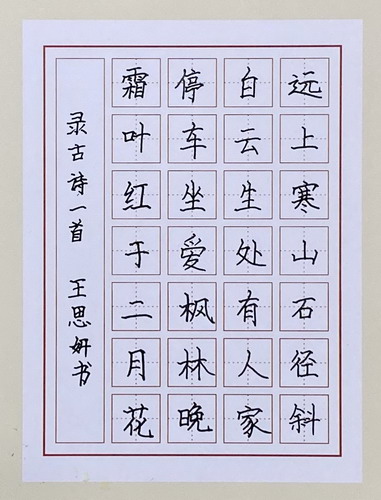 远上寒山石径斜
白云生处有人家
停车坐爱枫林晚
霜叶红于二月花
录古诗一首 王思妍书